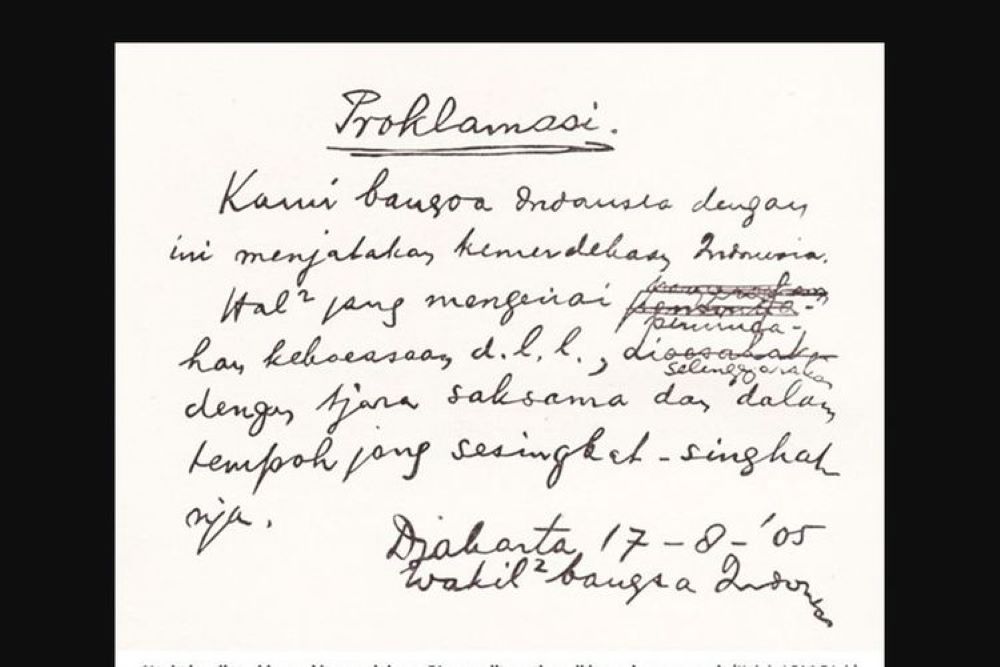 Proklamasi.
Kami bangsa Indonesia dengan
ini menjatakan kemerdekaan Indonesia.
Hal² jang mengenai
peminda-
han kekoeasaan d.l.l., dioesahak-
selenggarakan
dengan tjara saksama dan dalam
tempoh jang sesingkat-singkat
nja.
Djakarta, 17-8-'05
Wakil² bangsa Indonesia